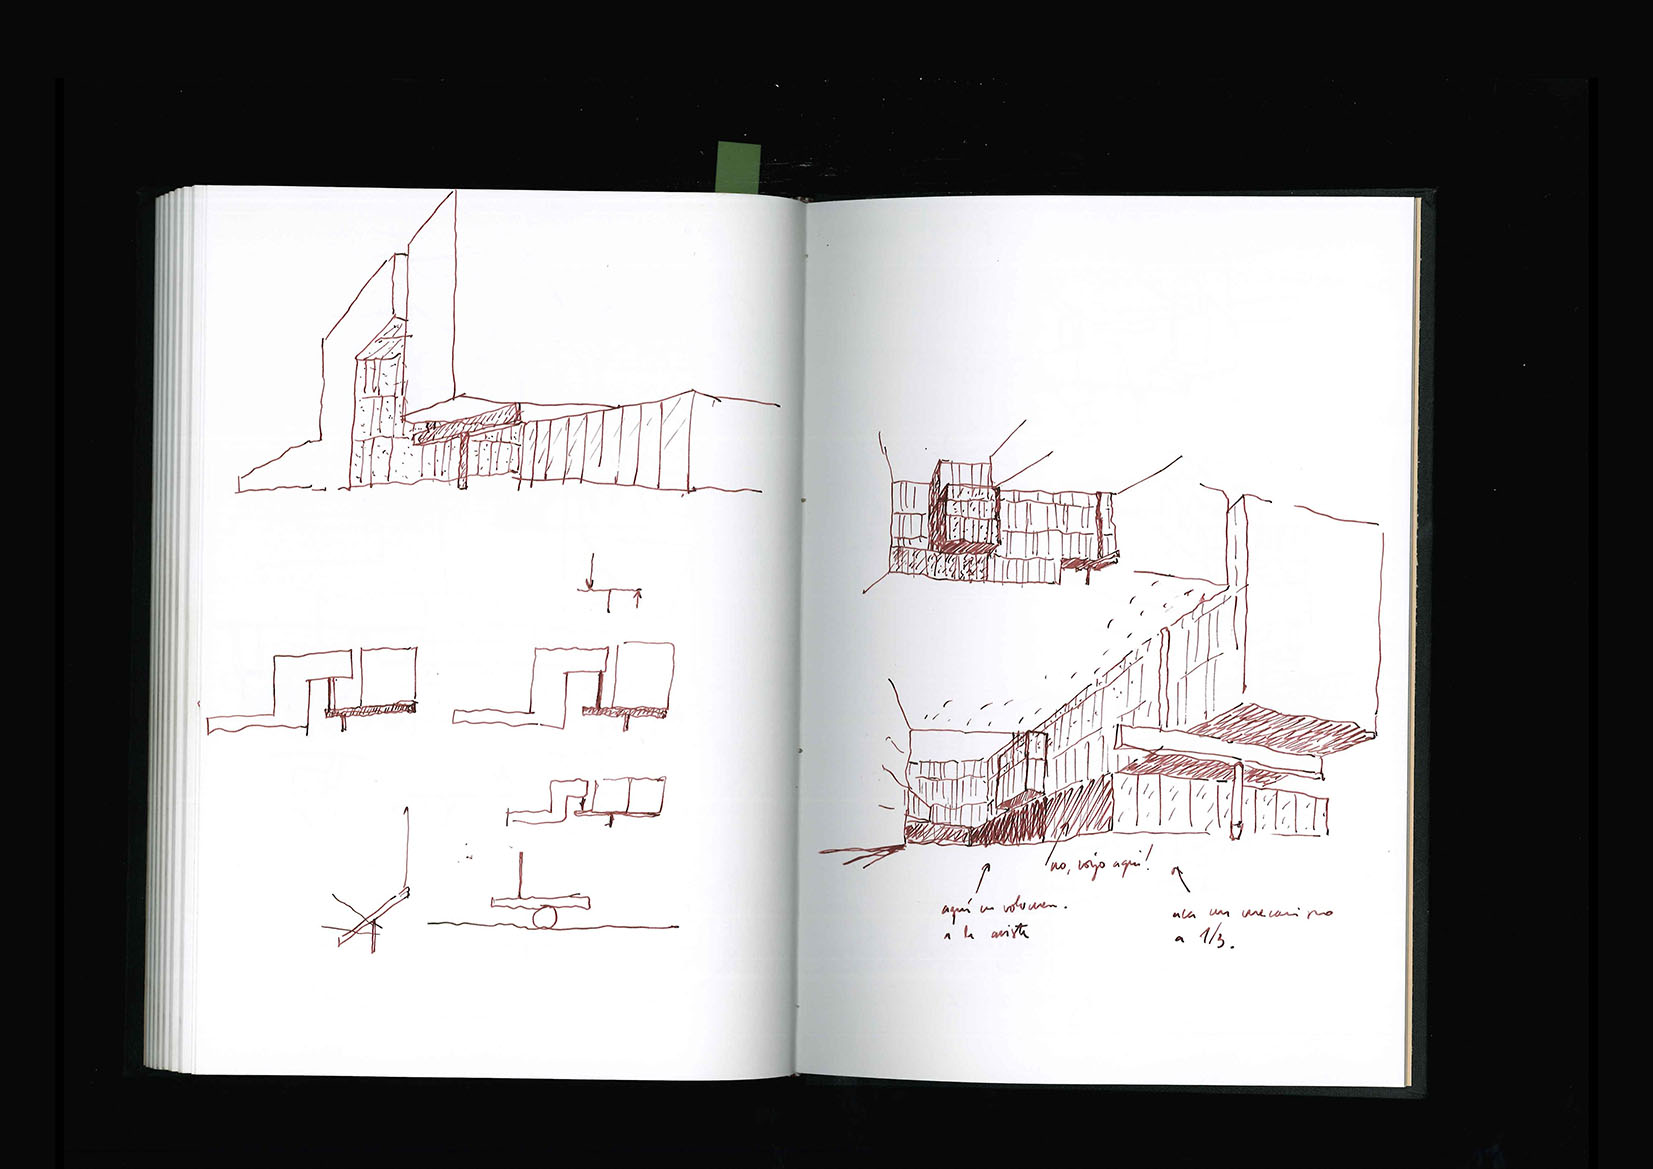 no, voyo aquí!
aquí un volumen.
a la arista
un mecanismo
a 1/3.